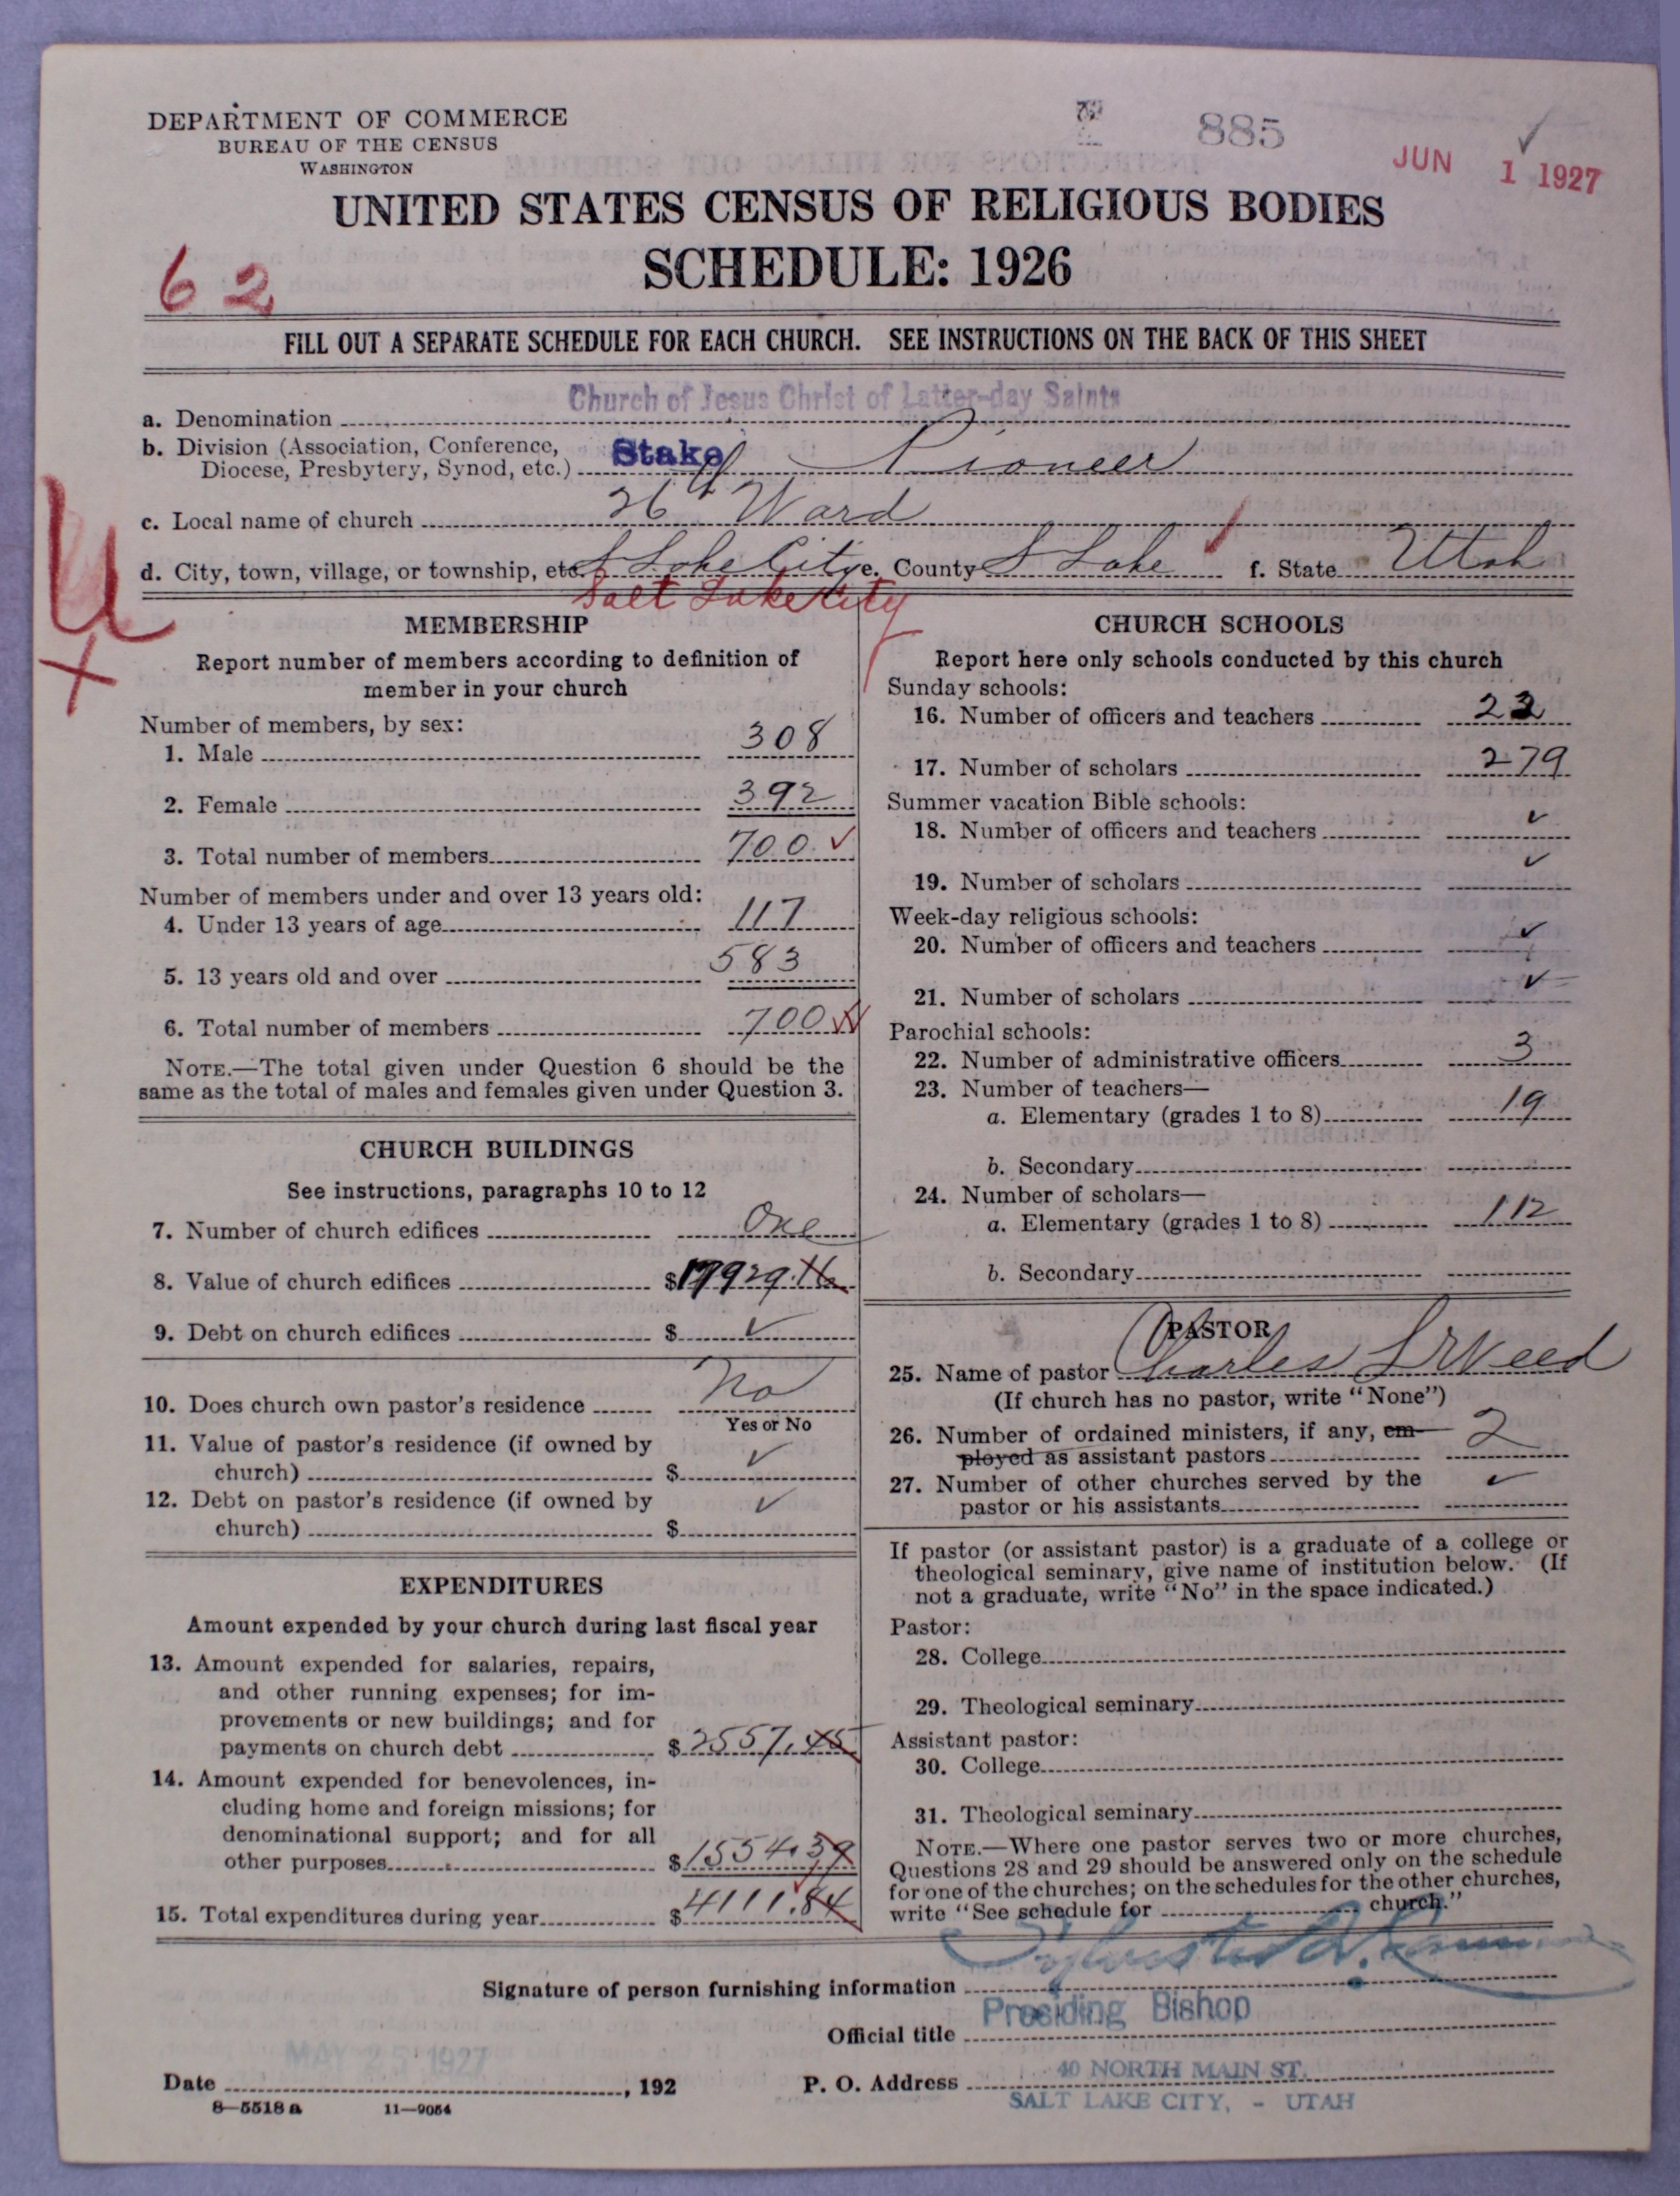 DEPARTMENT OF COMMERCE
BUREAU OF THE CENSUS
WASHINGTON
885
JUN 1 1927
UNITED STATES CENSUS OF RELIGIOUS BODIES
SCHEDULE: 1926
62
FILL OUT A SEPARATE SCHEDULE FOR EACH CHURCH. SEE INSTRUCTIONS ON THE BACK OF THIS SHEET
a. Denomination Church of Jesus Christ of Latter-day Saints
b. Division (Association, Conference,
Diocese, Presbytery, Synod, etc.) Stake Pioneer
c. Local name of church 26th Ward
d. City, town, village, or township, etc. S Lake City e. County S Lake f. State Utah
Salt Lake City
U
X
MEMBERSHIP
Report number of members according to definition of
member in your church
Number of members, by sex:
1. Male 308
2. Female 392
3. Total number of members 700 ✓
Number of members under and over 13 years old:
4. Under 13 years of age 117
5. 13 years old and over 583
6. Total number of members 700 ✓
NOTE.—The total given under Question 6 should be the
same as the total of males and females given under Question 3.
CHURCH BUILDINGS
See instructions, paragraphs 10 to 12
7. Number of church edifices One
8. Value of church edifices $17929.16
9. Debt on church edifices $ ✓
10. Does church own pastor's residence No
Yes or No
11. Value of pastor's residence (if owned by
church) $ ✓
12. Debt on pastor's residence (if owned by
church) $ ✓
EXPENDITURES
Amount expended by your church during last fiscal year
13. Amount expended for salaries, repairs,
and other running expenses; for im-
provements or new buildings; and for
payments on church debt $ 2557.45
14. Amount expended for benevolences, in-
cluding home and foreign missions; for
denominational support; and for all
other purposes $ 1554.39
15. Total expenditures during year $ 4111.84
CHURCH SCHOOLS
Report here only schools conducted by this church
Sunday schools:
16. Number of officers and teachers
17. Number of scholars 279
Summer vacation Bible schools:
18. Number of officers and teachers ✓
19. Number of scholars ✓
Week-day religious schools:
20. Number of officers and teachers ✓
21. Number of scholars ✓
Parochial schools:
22. Number of administrative officers 3
23. Number of teachers—
a. Elementary (grades 1 to 8) 19
b. Secondary
24. Number of scholars—
a. Elementary (grades 1 to 8) 112
b. Secondary
PASTOR
25. Name of pastor Charles
(If church has no pastor, write "None")
26. Number of ordained ministers, if any, em-
ployed as assistant pastors 2
27. Number of other churches served by the
pastor or his assistants ✓
If pastor (or assistant pastor) is a graduate of a college or
theological seminary, give name of institution below. (If
not a graduate, write "No" in the space indicated.)
Pastor:
28. College
29. Theological seminary
Assistant pastor:
30. College
31. Theological seminary
NOTE.—Where one pastor serves two or more churches,
Questions 28 and 29 should be answered only on the schedule
for one of the churches; on the schedules for the other churches,
write "See schedule for church."
Signature of person furnishing information
Official title Presiding Bishop
Date MAY 25 1927, 192
P. O. Address 40 NORTH MAIN ST.
SALT LAKE CITY, - UTAH
8—5518a 11—9054